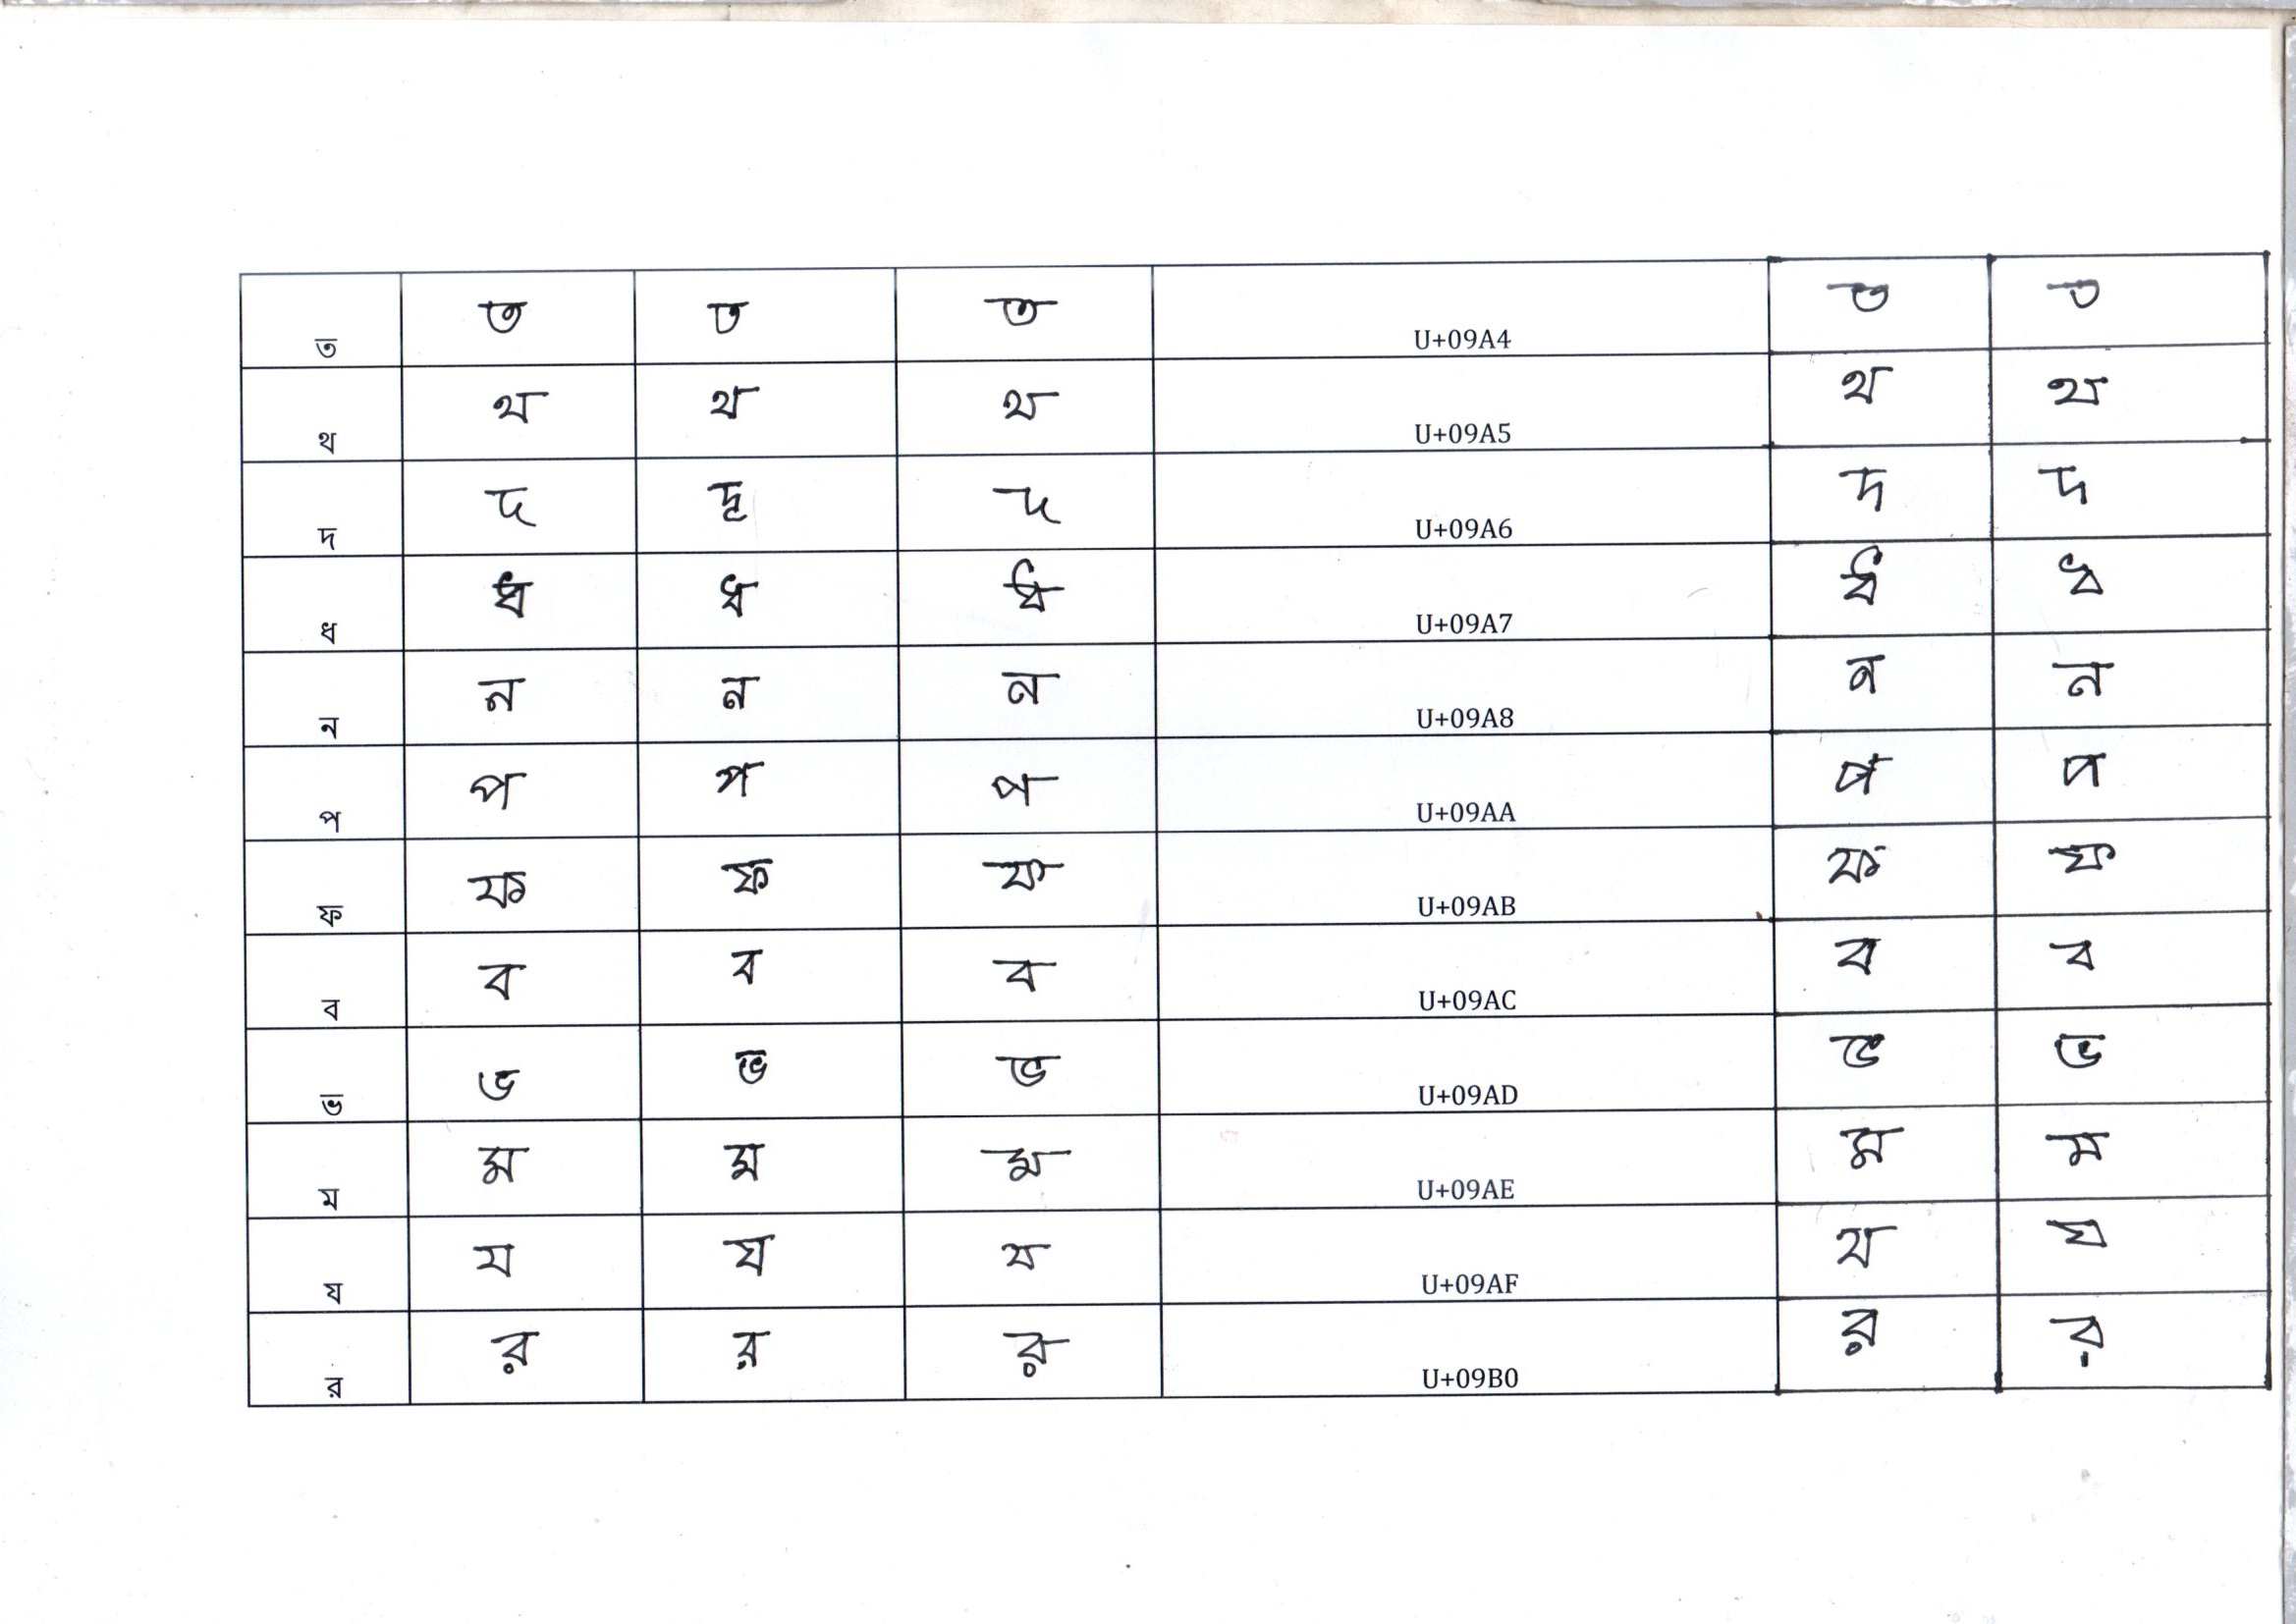 ত ত ত ত U+09A4 ত ত
থ থ থ থ U+09A5 থ থ
দ দ দ দ U+09A6 দ দ
ধ ধ ধ ধ U+09A7 ধ ধ
ন ন ন ন U+09A8 ন ন
প প প প U+09AA প প
ফ ফ ফ ফ U+09AB ফ ফ
ব ব ব ব U+09AC ব ব
ভ ভ ভ ভ U+09AD ভ ভ
ম ম ম ম U+09AE ম ম
য য য য U+09AF য য
র র র র U+09B0 র র